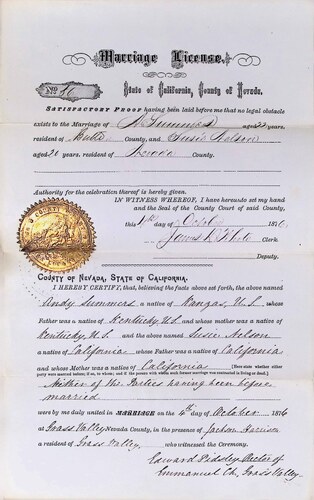 Marriage License.
No. 80 State of California, County of Nevada.
SATISFACTORY PROOF having been laid before me that no legal obstacle
exists to the Marriage of A. Summers aged years,
resident of Butte County, and Susie Nelson
aged 20 years, resident of Nevada County.
Authority for the celebration thereof is hereby given.
IN WITNESS WHEREOF, I have hereunto set my hand
and the Seal of the County Court of said County,
this 4th day of October 1876
James Clerk.
Deputy.
COUNTY OF NEVADA, STATE OF CALIFORNIA.
I HEREBY CERTIFY, that, believing the facts above set forth, the above named
Andy Summers a native of Kansas, U.S. whose
Father was a native of Kentucky, U.S. and whose mother was a native of
Kentucky, U.S. and the above named Susie Nelson
a native of California whose Father was a native of California
and whose Mother was a native of California
Neither of the Parties having been before
married
were by me duly united in MARRIAGE on the 4th day of October 1876
at Grass Valley Nevada County, in the presence of Jackson Harrison
a resident of Grass Valley, who witnessed the Ceremony.
Edward Rector of
Emmanuel Ch. Grass Valley